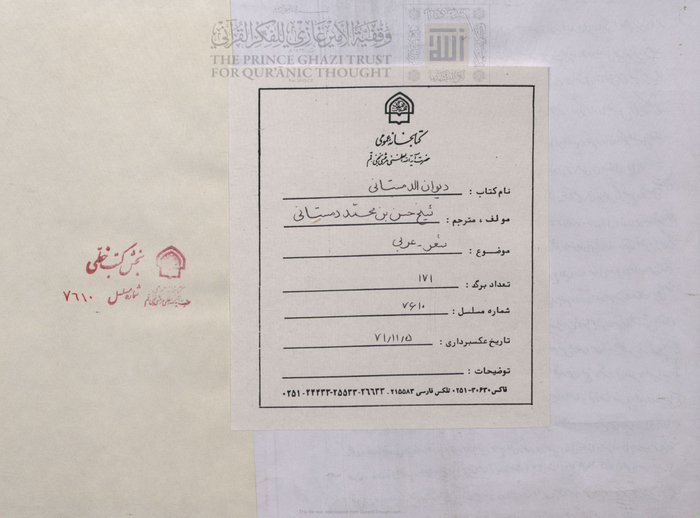 وقفية الأمير غازي للفكر القرآني
THE PRINCE GHAZI TRUST
FOR QUR'ĀNIC THOUGHT
الله
کتابخانه عمومی
حضرت آیة الله العظمی مرعشی نجفی قم
نام کتاب : دیوان الدمستانی
مولف ، مترجم : شیخ حسن بن محمد دمستانی
موضوع : شعر - عربی
تعداد برگ : ۱۷۱
شماره مسلسل : ۷۶۱۰
تاریخ عکسبرداری : ۷۱/۱۱/۵
توضیحات :
فاکس ۳۰۶۳۰-۰۲۵۱ تلکس فارسی ۲۱۵۵۸۳ . ۲۶۶۳۳-۲۵۵۳۳-۲۴۴۳۳-۰۲۵۱
بخش کتب خطی
شماره مسلسل ۷۶۱۰